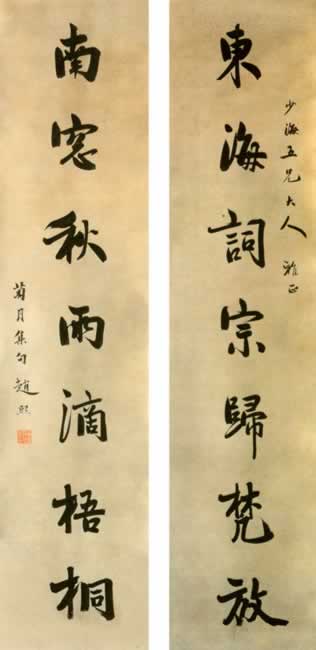 少海五兄大人 雅正
東海詞宗歸梵放
南窓秋雨滴梧桐
菊月集句 趙熙